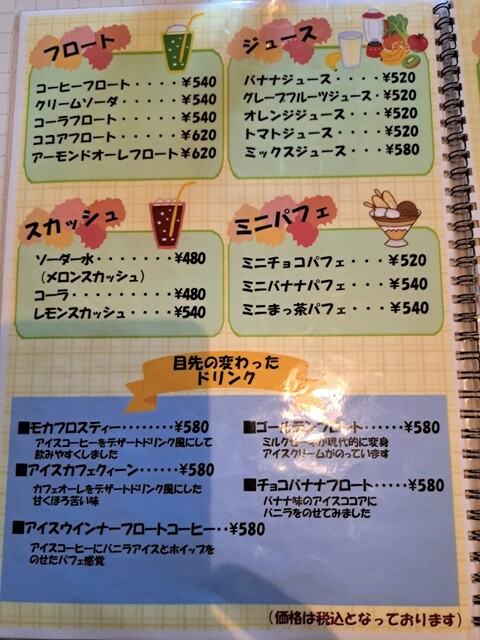 フロート
コーヒーフロート・・・・・¥540
クリームソーダ・・・・・¥540
コーラフロート・・・・・¥540
ココアフロート・・・・・¥620
アーモンドオーレフロート¥620
ジュース
バナナジュース・・・・¥520
グレープフルーツジュース・¥520
オレンジジュース・・・¥520
トマトジュース・・・・¥520
ミックスジュース・・・¥580
スカッシュ
ソーダー水・・・・・・・・¥480
（メロンスカッシュ）
コーラ・・・・・・・・・¥480
レモンスカッシュ・・・・¥540
ミニパフェ
ミニチョコパフェ・・・¥520
ミニバナナパフェ・・・¥540
ミニまっ茶パフェ・・・¥540
目先の変わった
ドリンク
■モカフロスティー・・・・・・・・¥580
アイスコーヒーをデザートドリンク風にして
飲みやすくしました
■アイスカフェクィーン・・・・・・¥580
カフェオーレをデザートドリンク風にした
甘くほろ苦い味
■アイスウインナーフロートコーヒー・・¥580
アイスコーヒーにバニラアイスとホイップを
のせたパフェ感覚
■ゴールデンフロート・・・・・・¥580
ミルクセーキが現代的に変身
アイスクリームがのっています
■チョコバナナフロート・・・・・¥580
バナナ味のアイスココアに
バニラをのせてみました
（価格は税込となっております）